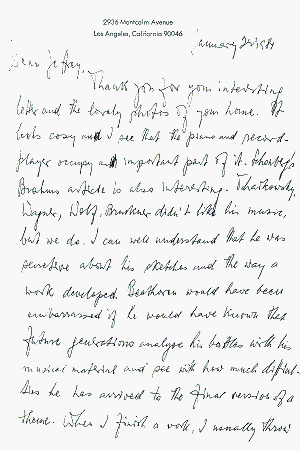 2936 Montcalm Avenue
Los Angeles, California 90046
January 24, 1984
Dear Jeffrey,
Thank you for your interesting
letter and the lovely photos of your home. It
looks cosy and I see that the piano and record-
player occupy an important part of it. Schonberg's
Brahms article is also interesting. Tchaikovsky,
Wagner, Wolf, Bruckner didn't like his music,
but we do. I can well understand that he was
secretive about his sketches and the way a
work developed. Beethoven would have been
embarrassed if he would have known that
future generations analyze his battles with his
musical material and see with how much difficul-
ties he has arrived to the final version of a
theme. When I finish a work, I usually throw